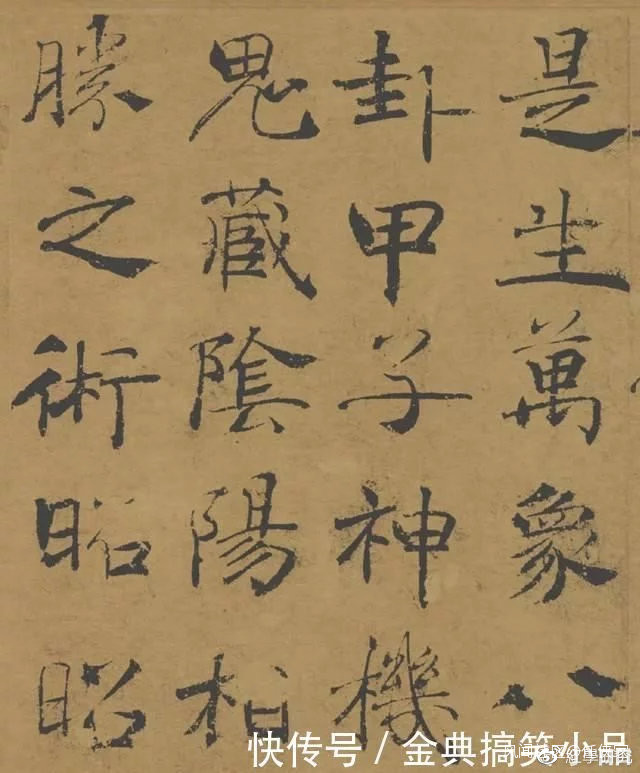 是生萬象八
卦甲子神機
鬼藏陰陽相
勝之術昭昭
快传号 / 金典搞笑小品